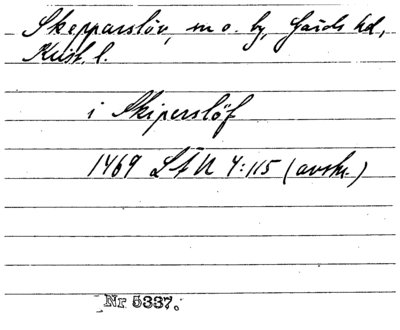 Skepparslöv, sn o. by, Gärds hd,
Krist. l.
i Skiperslöf
1469 LÄU 4:115 (avskr.)
Nr 5337.